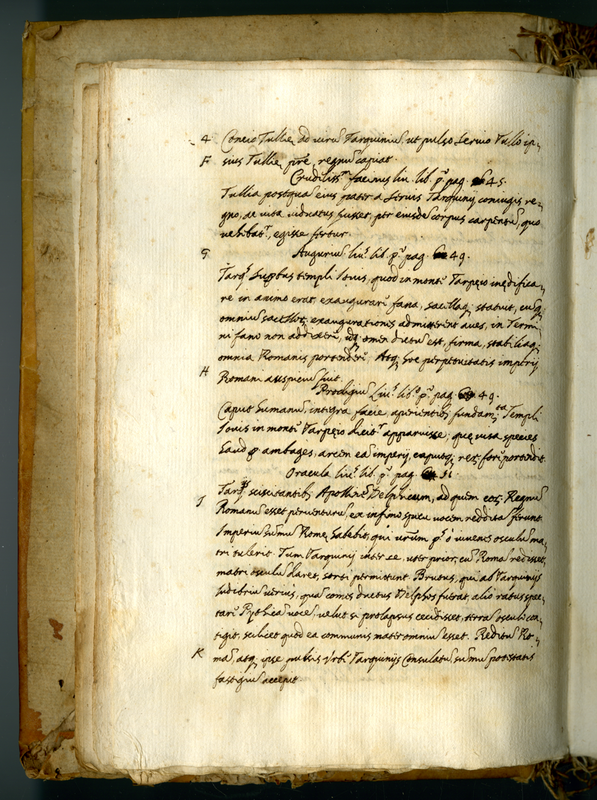 4 Concio Tullie ad virũ Tarquiniũ, ut pulso Servio Tullo ip„
F sius Tullie pre, regnũ capiat.
Crudeliss.m facinus liu. lib. p.o pag. 45.
Tullia postquã eius pater a Tarquinij coniugis re„
gno, ac vita viduatus fuisset, per eiusdẽ corpus carpentũ, quo
vehebat.r, egisse fertur.
G Auguriũ liu.s lib. p.o pag. 49.
Tarq.s templi Iouis, quod in monte Tarpeio inedifica„
re in animo erat, exaugurari fana, sacellaq; statuit, cuq;
omniũ exaugurationes admitterent aues, in Termi„
ni fano non addixerũ, idq; omen ductũ est, firma, stabiliaq;
omnia Romanis portenderẽ. Atq; hoc perpetuitatis imperij
H Romani auspiciũ fuit.
Prodigiũ Liu.s lib.o p.o pag. 49.
Caput humanũ, integra facie, aperientibq; fundam.ta Templi
Iouis in monte Tarpeio dicit.r apparuisse; que visa species
haud p ambages, arcem eã imperij, caputq; rerũ fore portendit.
Oracula liu.s lib. p.o pag. 51.
I Tarq.s sciscitantibq; Apollinẽ Delphicum, ad quem eoq; Regnũ
Romanũ esset peruenturũ ex infimo specu uocem redditã ferunt.
Imperiũ sum̃ũ Rome habebit, qui urũm p.s ò iuuenes osculũ ma„
tri tulerit. Tum Tarquinij inter se, uter prior, cũ Romã redisset,
matri osculũ daret, sorti permittunt. Brutus, qui ab Tarquinijs
ludibriũ uerius, quã comes ductus Delphos fuerat, alio ratus spe„
tare Pytheã uocẽ, uelut si prolapsus cecidisset, terrã osculo con„
tigit, scilicet quod ea communis mater omniũ esset. Reditũ Ro„
K mã, atq; ipse pulsis Vrbe Tarquinijs Consulatũ sum̃ũ potestatis
fastigiũ accepit.